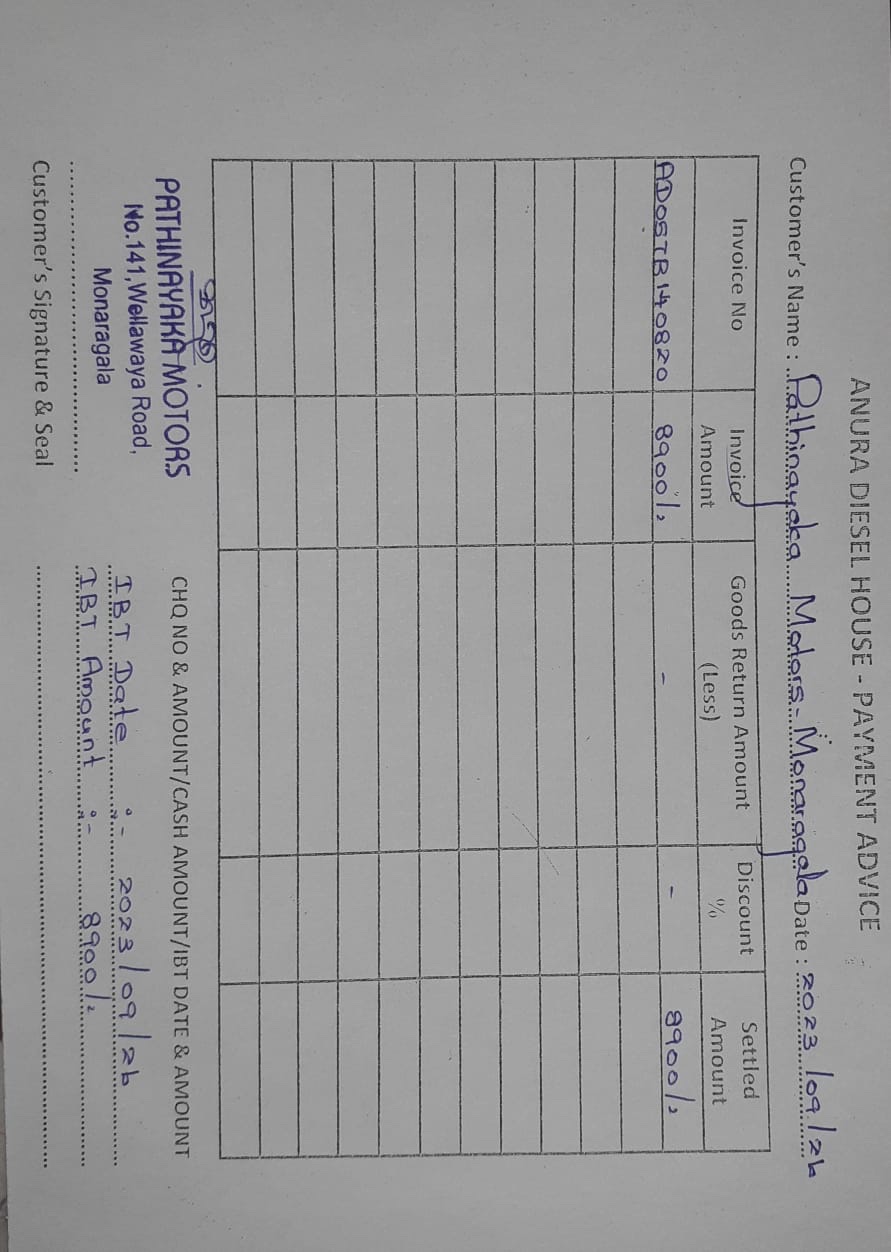 ANURA DIESEL HOUSE - PAYMENT ADVICE
Customer's Name : Pathinayaka Motors - Monaragala Date : 2023/09/26
Invoice No Invoice Amount Goods Return Amount (Less) Discount % Settled Amount
AD05TB140820 8900/= - - 8900/=
PATHINAYAKA MOTORS
No.141, Wellawaya Road,
Monaragala
Customer's Signature & Seal
CHQ NO & AMOUNT/CASH AMOUNT/IBT DATE & AMOUNT
IBT Date :- 2023/09/26
IBT Amount :- 8900/=